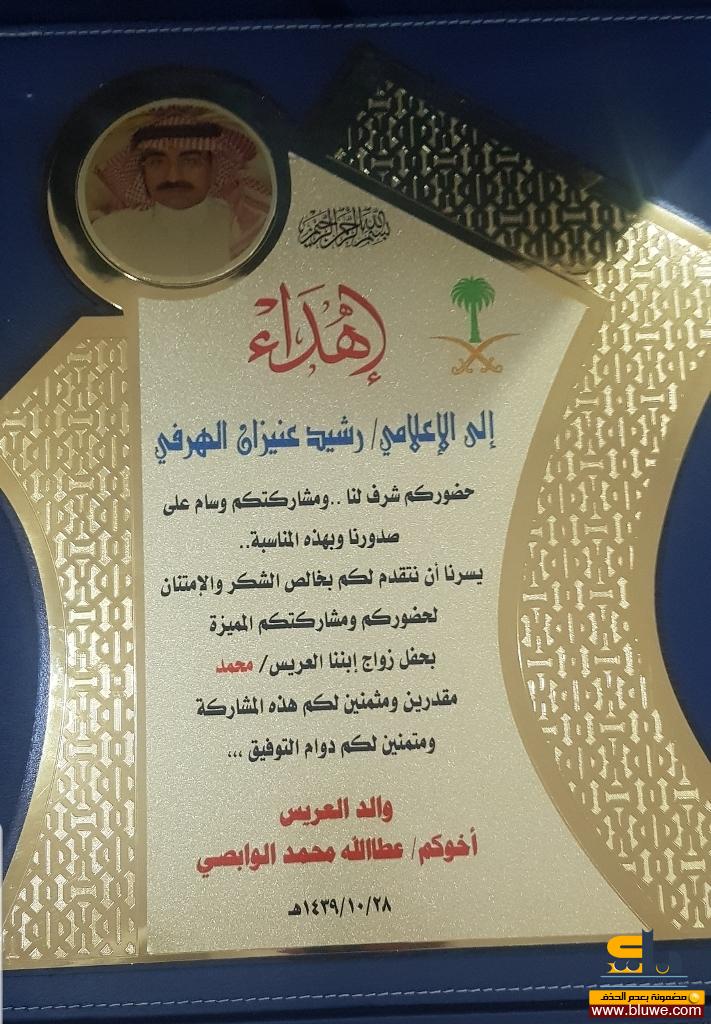 بسم الله الرحمن الرحيم
إهْدَاء
إلى الإعلامي/ رشيد عنيزان الهرفي
حضوركم شرف لنا ..ومشاركتكم وسام على
صدورنا وبهذه المناسبة..
يسرنا أن نتقدم لكم بخالص الشكر والإمتنان
لحضوركم ومشاركتكم المميزة
بحفل زواج إبننا العريس/ محمد
مقدرين ومثمنين لكم هذه المشاركة
ومتمنين لكم دوام التوفيق ,,,
والد العريس
أخوكم/ عطاالله محمد الوابصي
١٤٣٩/١٠/٢٨هـ
مضمونة بعدم الحذف
www.bluwe.com